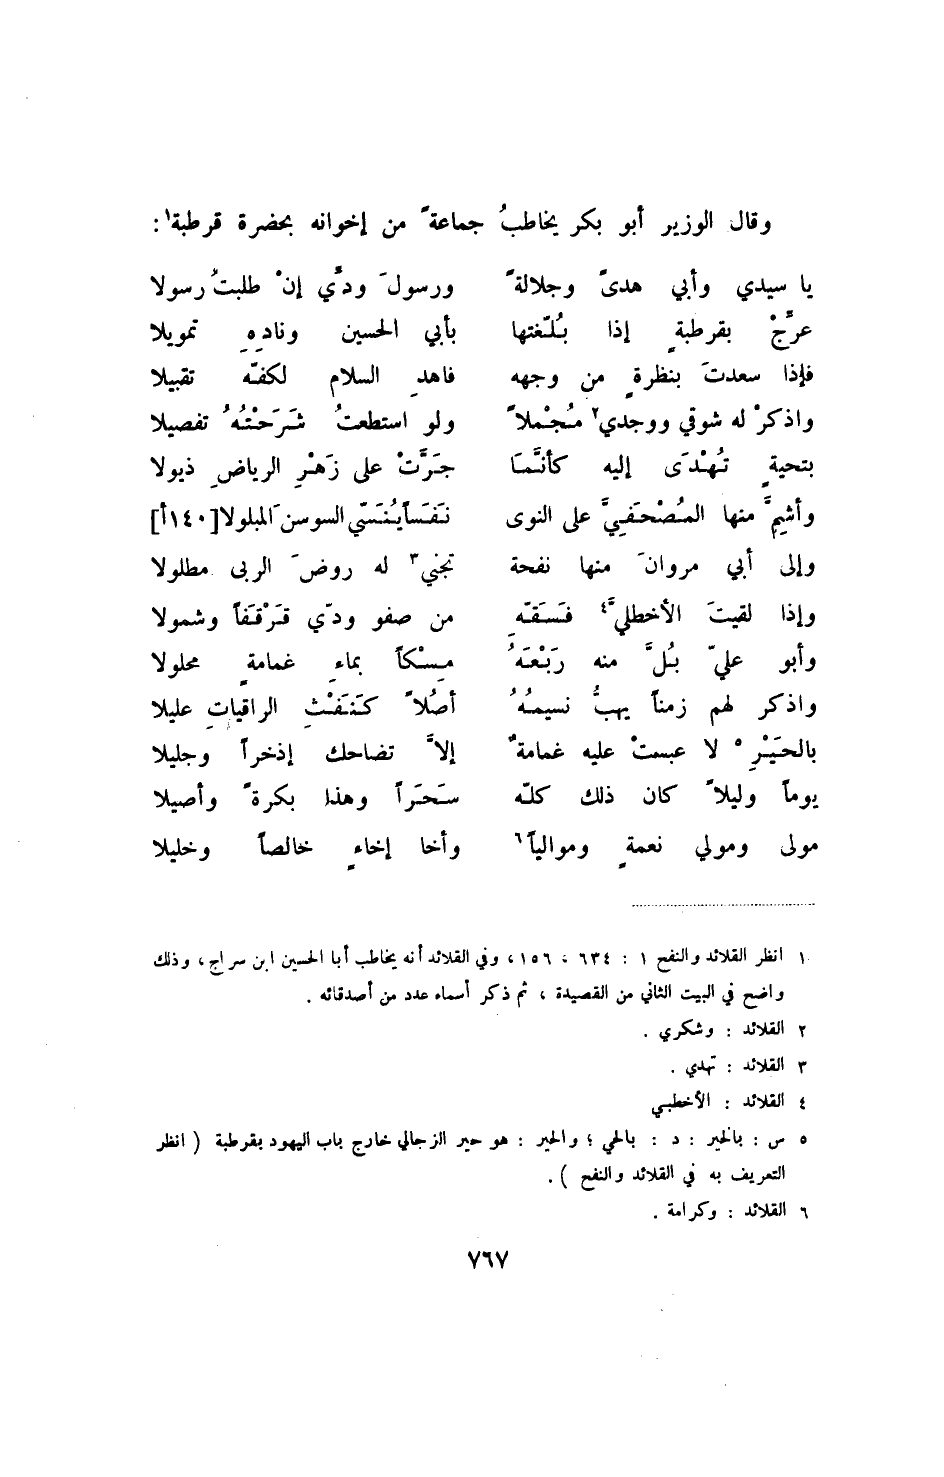 وقال الوزير أبو بكر يخاطبُ جماعةً من إخوانه بحضرة قرطبة١ :
يا سيدي وأبي هدىً وجلالةً ورسولَ ودِّي إنْ طلبتُ رسولا
عرِّجْ بقرطبةٍ إذا بُلّغتها بأبي الحسين ونادِهِ تمويلا
فإذا سعدتَ بنظرةٍ من وجهه فاهدِ السلام لكفّه تقبيلا
واذكرْ له شوقي ووجدي٢ مُجْملاً ولو استطعتُ شَرَحْتُهُ تفصيلا
بتحيةٍ تُهْدَى إليه كأنَّمَا جَرَّتْ على زَهْرِ الرياضِ ذيولا
وأشِمَّ منها المُصْحَفِيَّ على النوى نَفَساً يُنَسّي السوسنَ المبلولا [١٤٠أ]
وإلى أبي مروانَ منها نفحة تجني٣ له روضَ الربى مطلولا
وإذا لقيتَ الأخطليَّ٤ فَسَقِّهِ من صفو ودّي قَرْقَفاً وشمولا
وأبو عليّ بُلَّ منه رَبْعَهُ مِسْكاً بماءِ غمامةٍ محلولا
واذكر لهم زمناً يهبُّ نسيمُهُ أُصُلاً كَنَفْثِ الراقياتِ عليلا
بالحَيْرِ٥ لا عبستْ عليه غمامةٌ إلاَّ تضاحك إذخراً وجليلا
يوماً وليلاً كان ذلك كلّه سَحَراً وهذا بكرةً وأصيلا
مولى ومولي نعمةٍ وموالياً٦ وأخا إخاءٍ خالصاً وخليلا
١ انظر القلائد والنفح ١ : ٦٣٤ ، ١٥٦ ، وفي القلائد أنه يخاطب أبا الحسين ابن سراج ، وذلك
واضح في البيت الثاني من القصيدة ، ثم ذكر أسماء عدد من أصدقائه .
٢ القلائد : وشكري .
٣ القلائد : تهدي .
٤ القلائد : الأخطبي
٥ س : بالخير : د : بالحي ؛ والحير : هو حير الزجالي خارج باب اليهود بقرطبة ( انظر
التعريف به في القلائد والنفح ) .
٦ القلائد : وكرامة .
٧٦٧